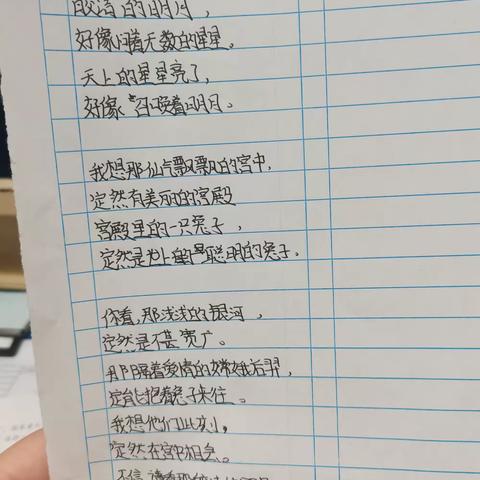 皎洁的明月，
好像闪着无数的星星。
天上的星星亮了，
好像召唤着明月。
我想那仙气飘飘的宫中，
定然有美丽的宫殿
宫殿里的一只兔子，
定然是世上最聪明的兔子。
你看，那浅浅的银河，
定然是不甚宽广。
那隔着爱情的嫦娥后羿，
定能抱着兔子来往。
我想他们此刻，
定然在宫中相会。
不信，请看那